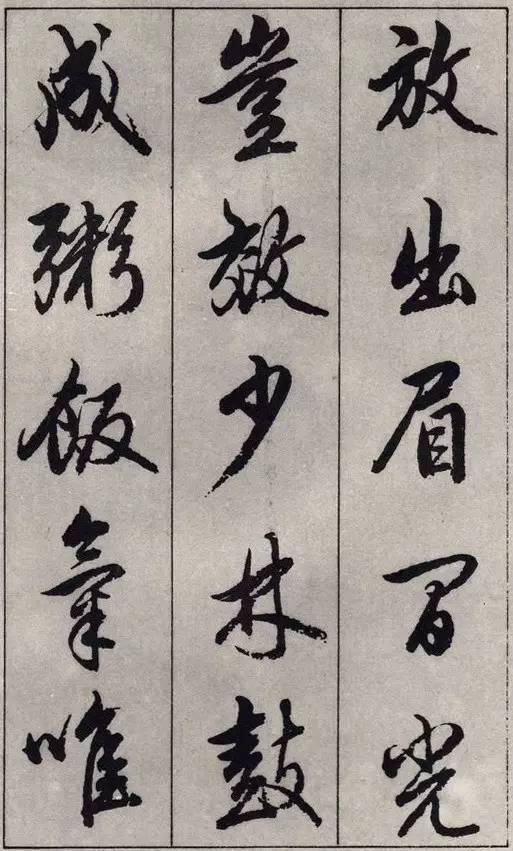 放出眉間光
豈效少林鼓
成粥飯氣唯